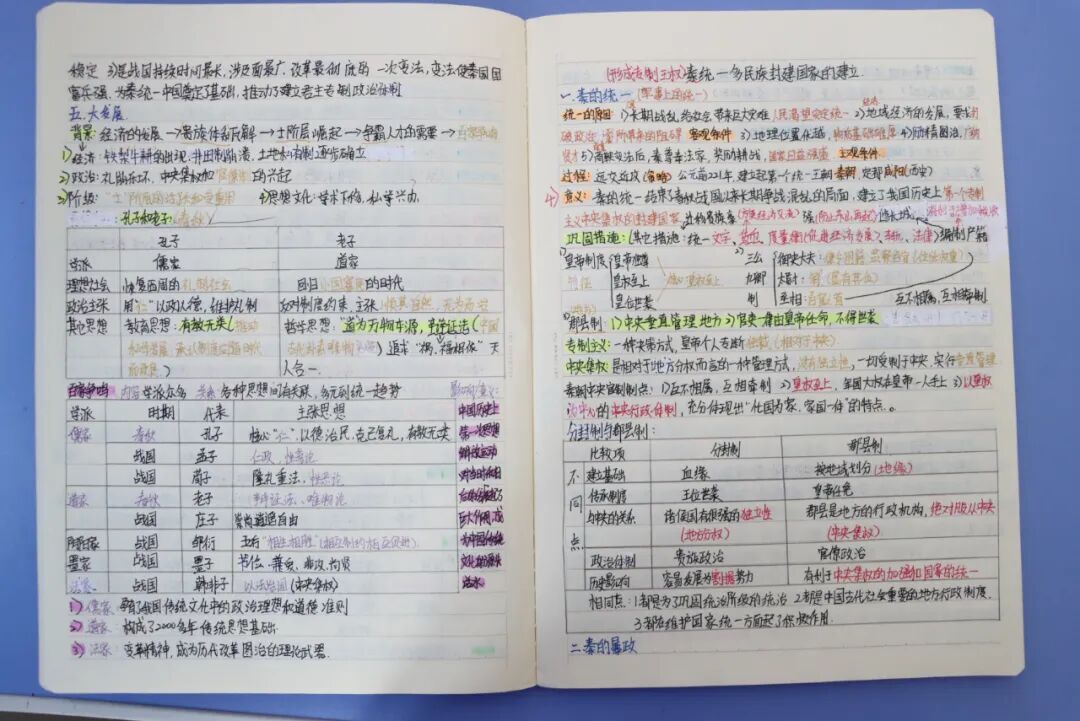 稳定 3)是战国持续时间最长,涉及面最广,改革最彻底的一次变法,变法使秦国国
富兵强,为秦统一中国奠定了基础,推动了建立君主专制政治体制
五、大发展
背景:经济的发展→宗族体制瓦解→士阶层崛起→争霸人才的需要→百家争鸣
1)经济:铁犁牛耕的出现,井田制崩溃,土地私有制逐步确立
2)政治:礼崩乐坏,中央集权和官僚制的兴起
3)阶级:"士"阶层的活跃和受重用 4)思想文化:学术下移,私学兴办
孔子和老子:(春秋)
孔子 老子
学派 儒家 道家
理想社会 恢复西周的礼制社会 回归小国寡民的时代
政治主张 用"仁"以政以德,维护礼制 反对制度约束,主张顺其自然,无为而治
其他思想 教育思想:有教无类(推动 哲学思想:"道为万物本源,辩证法(中国
古代朴素唯物) 追求"祸,福相依"天
人合一
百家争鸣 内容 学派众多 关系:各种思想间有关联,多元到统一趋势 影响/意义:
学派 时期 代表 主张思想 中国历史上
儒家 春秋 孔子 核心"仁",以德治民,克己复礼,有教无类 第一次思想
战国 孟子 仁政,性善论 解放运动
战国 荀子 隆礼重法,性恶论
道家 春秋 老子 辩证法、唯物论
战国 庄子 崇尚逍遥自由
阴阳家 战国 邹衍 五行"相生相胜"(相互制约相互促进)
墨家 战国 墨子 节俭、兼爱、非攻、尚贤
法家 战国 韩非子 以法治国(中央集权)
1)儒家:孕育了我国传统文化中的政治理想和道德准则
2)道家:构成了2000多年传统思想基础
3)法家:变革精神,成为历代改革图治的理论武器
(形成专制王权)秦统一多民族封建国家的建立
一、秦的统一(军事上的统一)
统一的原因:1)长期战乱,给农业带来巨大灾难,人民渴望安定统一 2)地域经济的发展,要求打
破政治,客观条件 3)地理位置优越,物质基础雄厚 4)励精图治,广纳
贤才 5)商鞅变法后,秦尊奉法家,奖励耕战,国家日益强盛 主观条件
过程:远交近攻(策略) 公元前221年,建立起第一个统一王朝秦朝,定都咸阳(西安)
意义:秦的统一,结束了春秋战国以来长期争战混乱的局面,建立了我国历史上第一个专制
主义中央集权的封建国家
巩固措施:(其他措施:统一文字、货币、度量衡(促进经济发展)、车轨、法律)编制户籍
1)皇帝制度 皇帝独尊 2)三公 御史大夫:
特征 皇权至上 核心皇权至上 九卿 太尉:
皇位世袭 制 丞相:百官首 互不相属,互相牵制
3)郡县制:1)中央垂直管理地方 2)官吏一律由皇帝任命,不得世袭
专制主义:一种决策方式,皇帝个人专断独裁(相对于民主)
中央集权:是相对于地方分权而言的一种管理方式,没有独立性,一切受制于中央,实行垂直管理
秦朝中央官制特点:1)互不相属,互相牵制 2)皇权至上,全国大权在皇帝一人手上 3)以皇权
为中心的中央行政体制,充分体现出"化国为家,家国一体"的特点。
分封制与郡县制:
比较项 分封制 郡县制
不 建立基础 血缘 按地域划分(地缘)
同 传承制度 王位世袭 皇帝任免
与中央的关系 诸侯国有很强的独立性 郡县是地方的行政机构,绝对服从中央
点 (地方分权) (中央集权)
政治体制 贵族政治 官僚政治
历史影响 容易发展为割据势力 有利于中央集权的加强和国家的统一
相同点:1.都是为了巩固统治阶级的统治 2.都是中国古代社会重要的地方行政制度
3.都在维护国家统一方面起了积极作用
二、秦的暴政